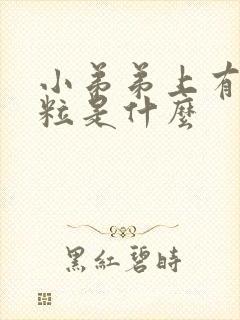 小弟弟上有
粒是什麼
黑紅碧時